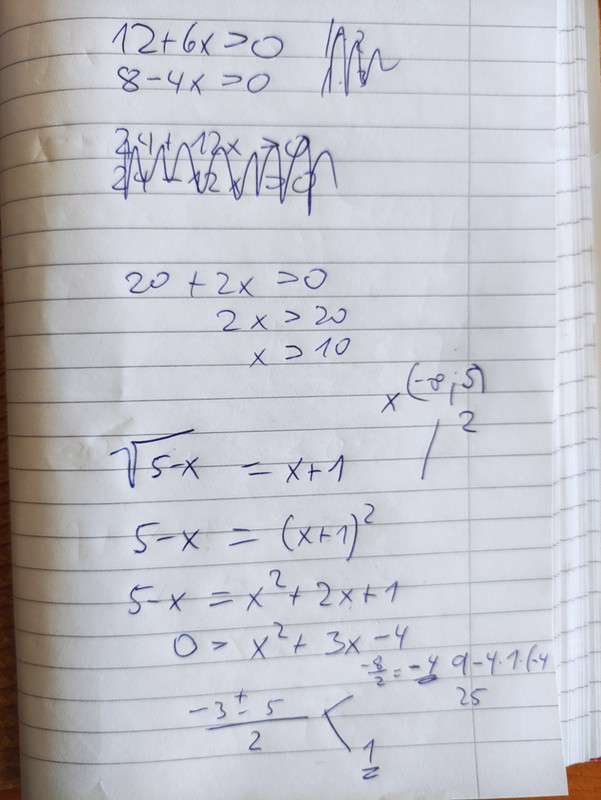 12+6x>0
8-4x>0
20 + 2x >0
2x > 20
x > 10
x (-∞;5)
√5-x = x+1 / 2
5-x = (x+1)²
5-x = x² + 2x+1
0 = x² + 3x -4
-8/2 = -4 9-4·1·(-4
25
-3 ± 5 / 2
1